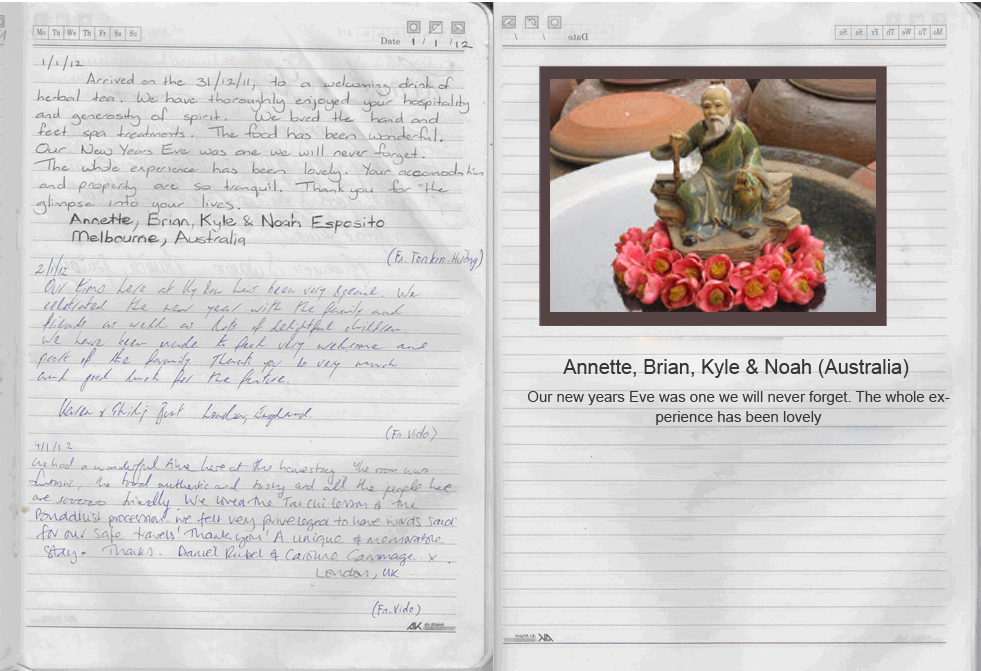 Mo Tu We Th Fr Sa Su
Date 1 / 1 / 12
1/1/12
Arrived on the 31/12/11, to a welcoming drink of
herbal tea. We have thoroughly enjoyed your hospitality
and generosity of spirit. We loved the hand and
feet spa treatments. The food has been wonderful.
Our New Years Eve was one we will never forget.
The whole experience has been lovely. Your
and property are so tranquil. Thank you for the
glimpse into your lives.
Annette, Brian, Kyle & Noah Esposito
Melbourne, Australia
2/1/12
Our time here at has been very special. We
celebrated the new year with the family and
friends as well as lots of delightful children.
We have been made to feel very welcome and
part of the family Thank you so very much
and good luck for the future.
London, England
(Fr. Vido)
4/1/12
We had a wonderful time here at the homestay The room was
the food authentic and tasty and all the people here
are friendly We loved the Tai chi lesson & the
Bouddhist procession we felt very priveleged to have words said
for our safe travels! Thank you! A unique & memorable
stay. Thanks. Daniel & Caroline x.
London, UK
(Fr. Vido)
AK
Date
Mo Tu We Th Fr Sa Su
Annette, Brian, Kyle & Noah (Australia)
Our new years Eve was one we will never forget. The whole ex-
perience has been lovely
AK